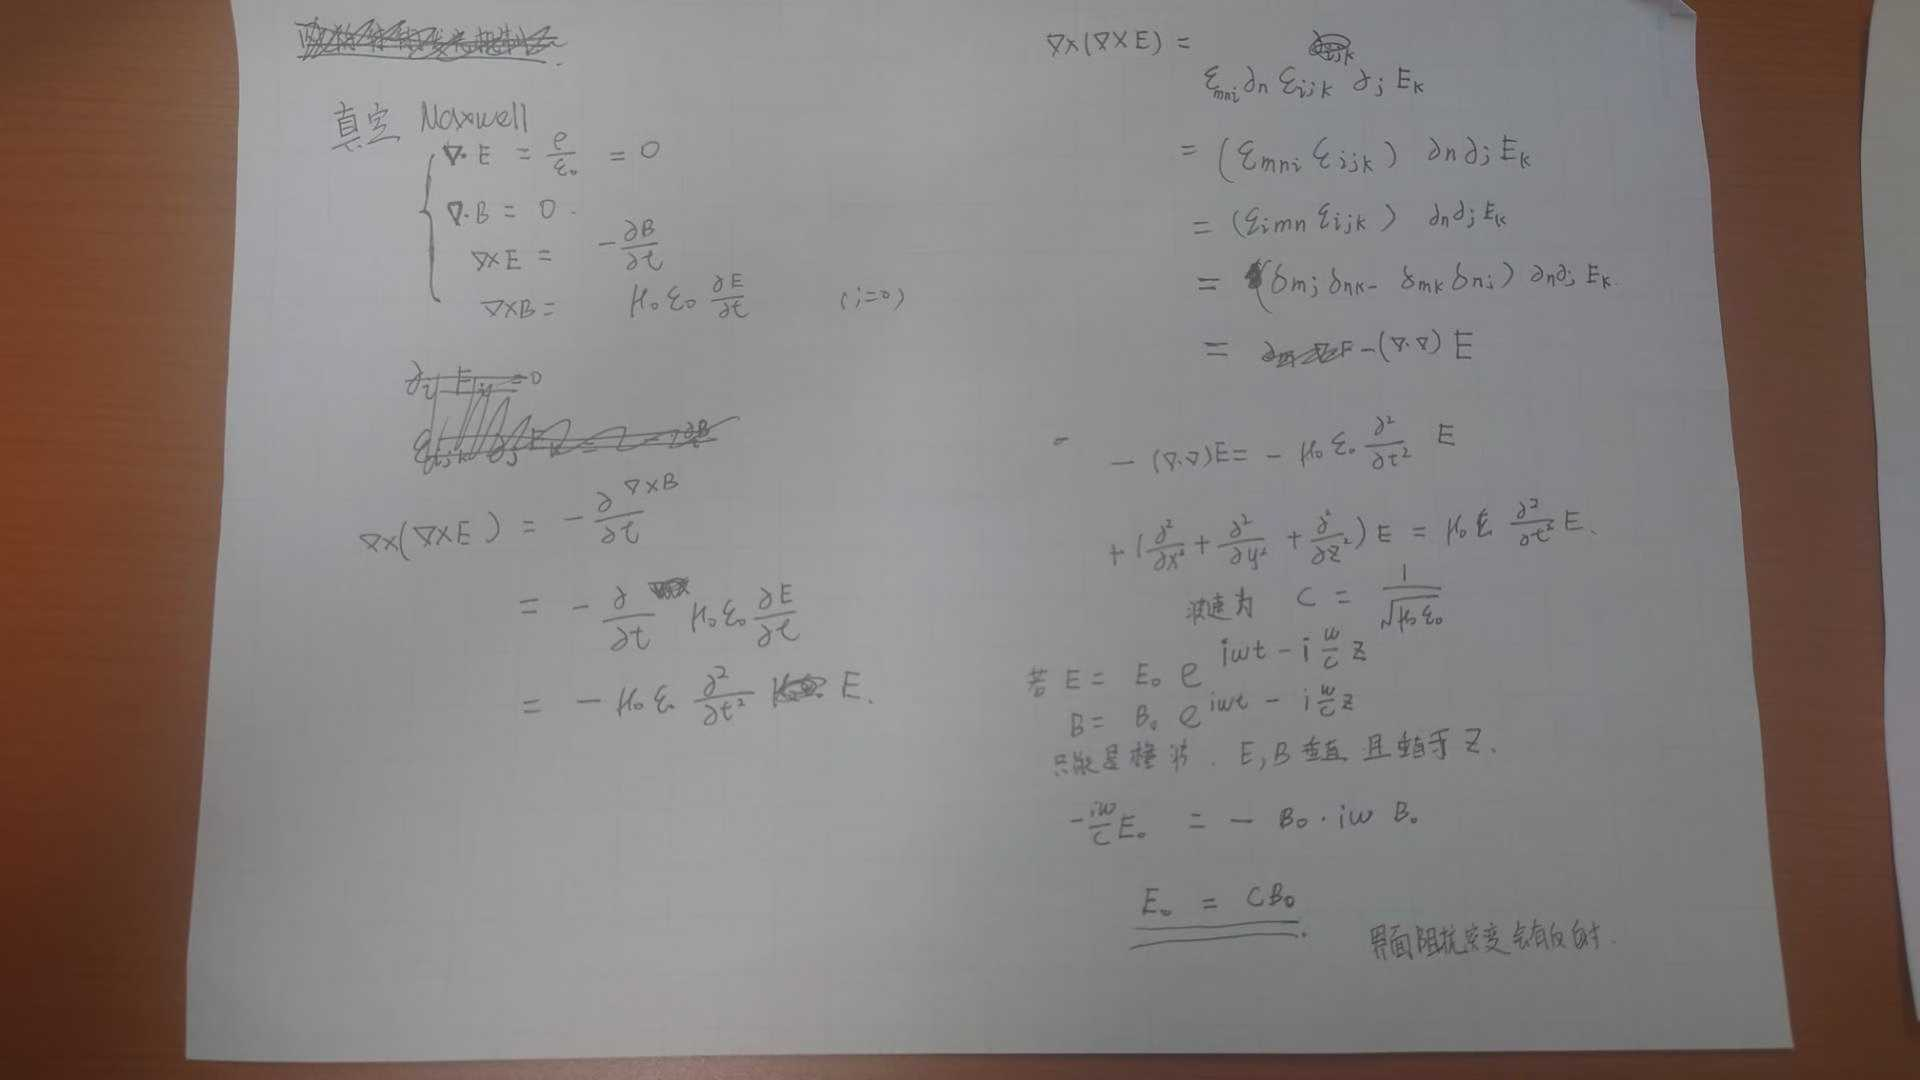 真空 Maxwell
∇·E = ρ/ε₀ = 0
∇·B = 0
∇×E = -∂B/∂t
∇×B = μ₀ε₀ ∂E/∂t (j=0)
∇×(∇×E) = -∂/∂t ∇×B
= -∂/∂t μ₀ε₀ ∂E/∂t
= -μ₀ε₀ ∂²/∂t² E.
∇×(∇×E) =
ε_mni ∂n ε_ijk ∂j E_k
= (ε_mni ε_ijk) ∂n ∂j E_k
= (ε_imn ε_ijk) ∂n ∂j E_k
= (δmj δnk - δmk δnj) ∂n ∂j E_k.
= -(∇·∇) E
-(∇·∇)E = -μ₀ε₀ ∂²/∂t² E
+(∂²/∂x² + ∂²/∂y² + ∂²/∂z²) E = μ₀ε ∂²/∂t² E.
波速为 C = 1/√(μ₀ε₀)
若 E = E₀ e^(iwt - i w/c z)
B = B₀ e^(iwt - i w/c z)
只能是横波. E, B 垂直 且垂直于 Z.
-iw/c E₀ = - B₀ · iw B₀
E₀ = CB₀.
界面阻抗突变会有反射.